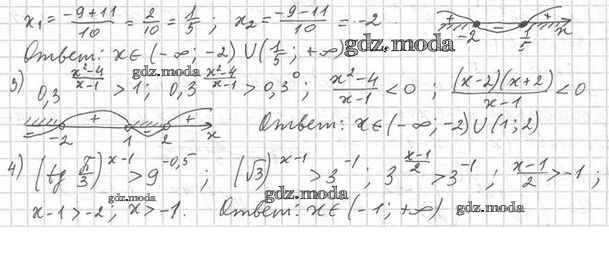 x₁ = (-9+11)/10 = 2/10 = 1/5 ; x₂ = (-9-11)/10 = -2
+ - + -2 1/5 x
Ответ: x∈(-∞; -2)∪(1/5; +∞) gdz.moda
3) 0,3^((x²-4)/(x-1)) > 1; 0,3^((x²-4)/(x-1)) > 0,3⁰ ; (x²-4)/(x-1) < 0 ; ((x-2)(x+2))/(x-1) < 0
gdz.moda gdz.moda
- + - + -2 1 2 x
Ответ: x∈(-∞; -2)∪(1; 2)
4) (tg π/3)^(x-1) > 9^(-0,5) ; (√3)^(x-1) > 3^(-1) ; 3^((x-1)/2) > 3^(-1) ; (x-1)/2 > -1 ;
gdz.moda gdz.moda
x-1 > -2 ; x > -1. Ответ: x∈(-1; +∞) gdz.moda